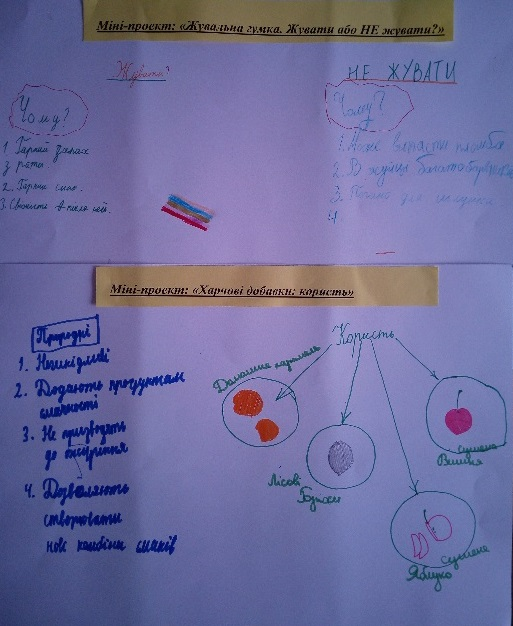 Міні-проект: «Жувальна гумка. Жувати або НЕ жувати?»
Жувати?
НЕ ЖУВАТИ
Чому?
Чому?
1 Гарний запах
з рота.
2. Гарна сила.
3.
1. Може випасти пломба
2. В жуйці багато барвників
3. Погано для шлунка
4
Міні-проект: «Харчові добавки: користь»
Природні
1. Нешкідливі
2. Додають продуктам
смачності
3. Не призводять
до ожиріння
4. Дозволяють
створювати
нові комбіни смаків
Користь
Домашня карамель
Лісові
Горіхи
сушена
Вишня
сушене
Яблуко